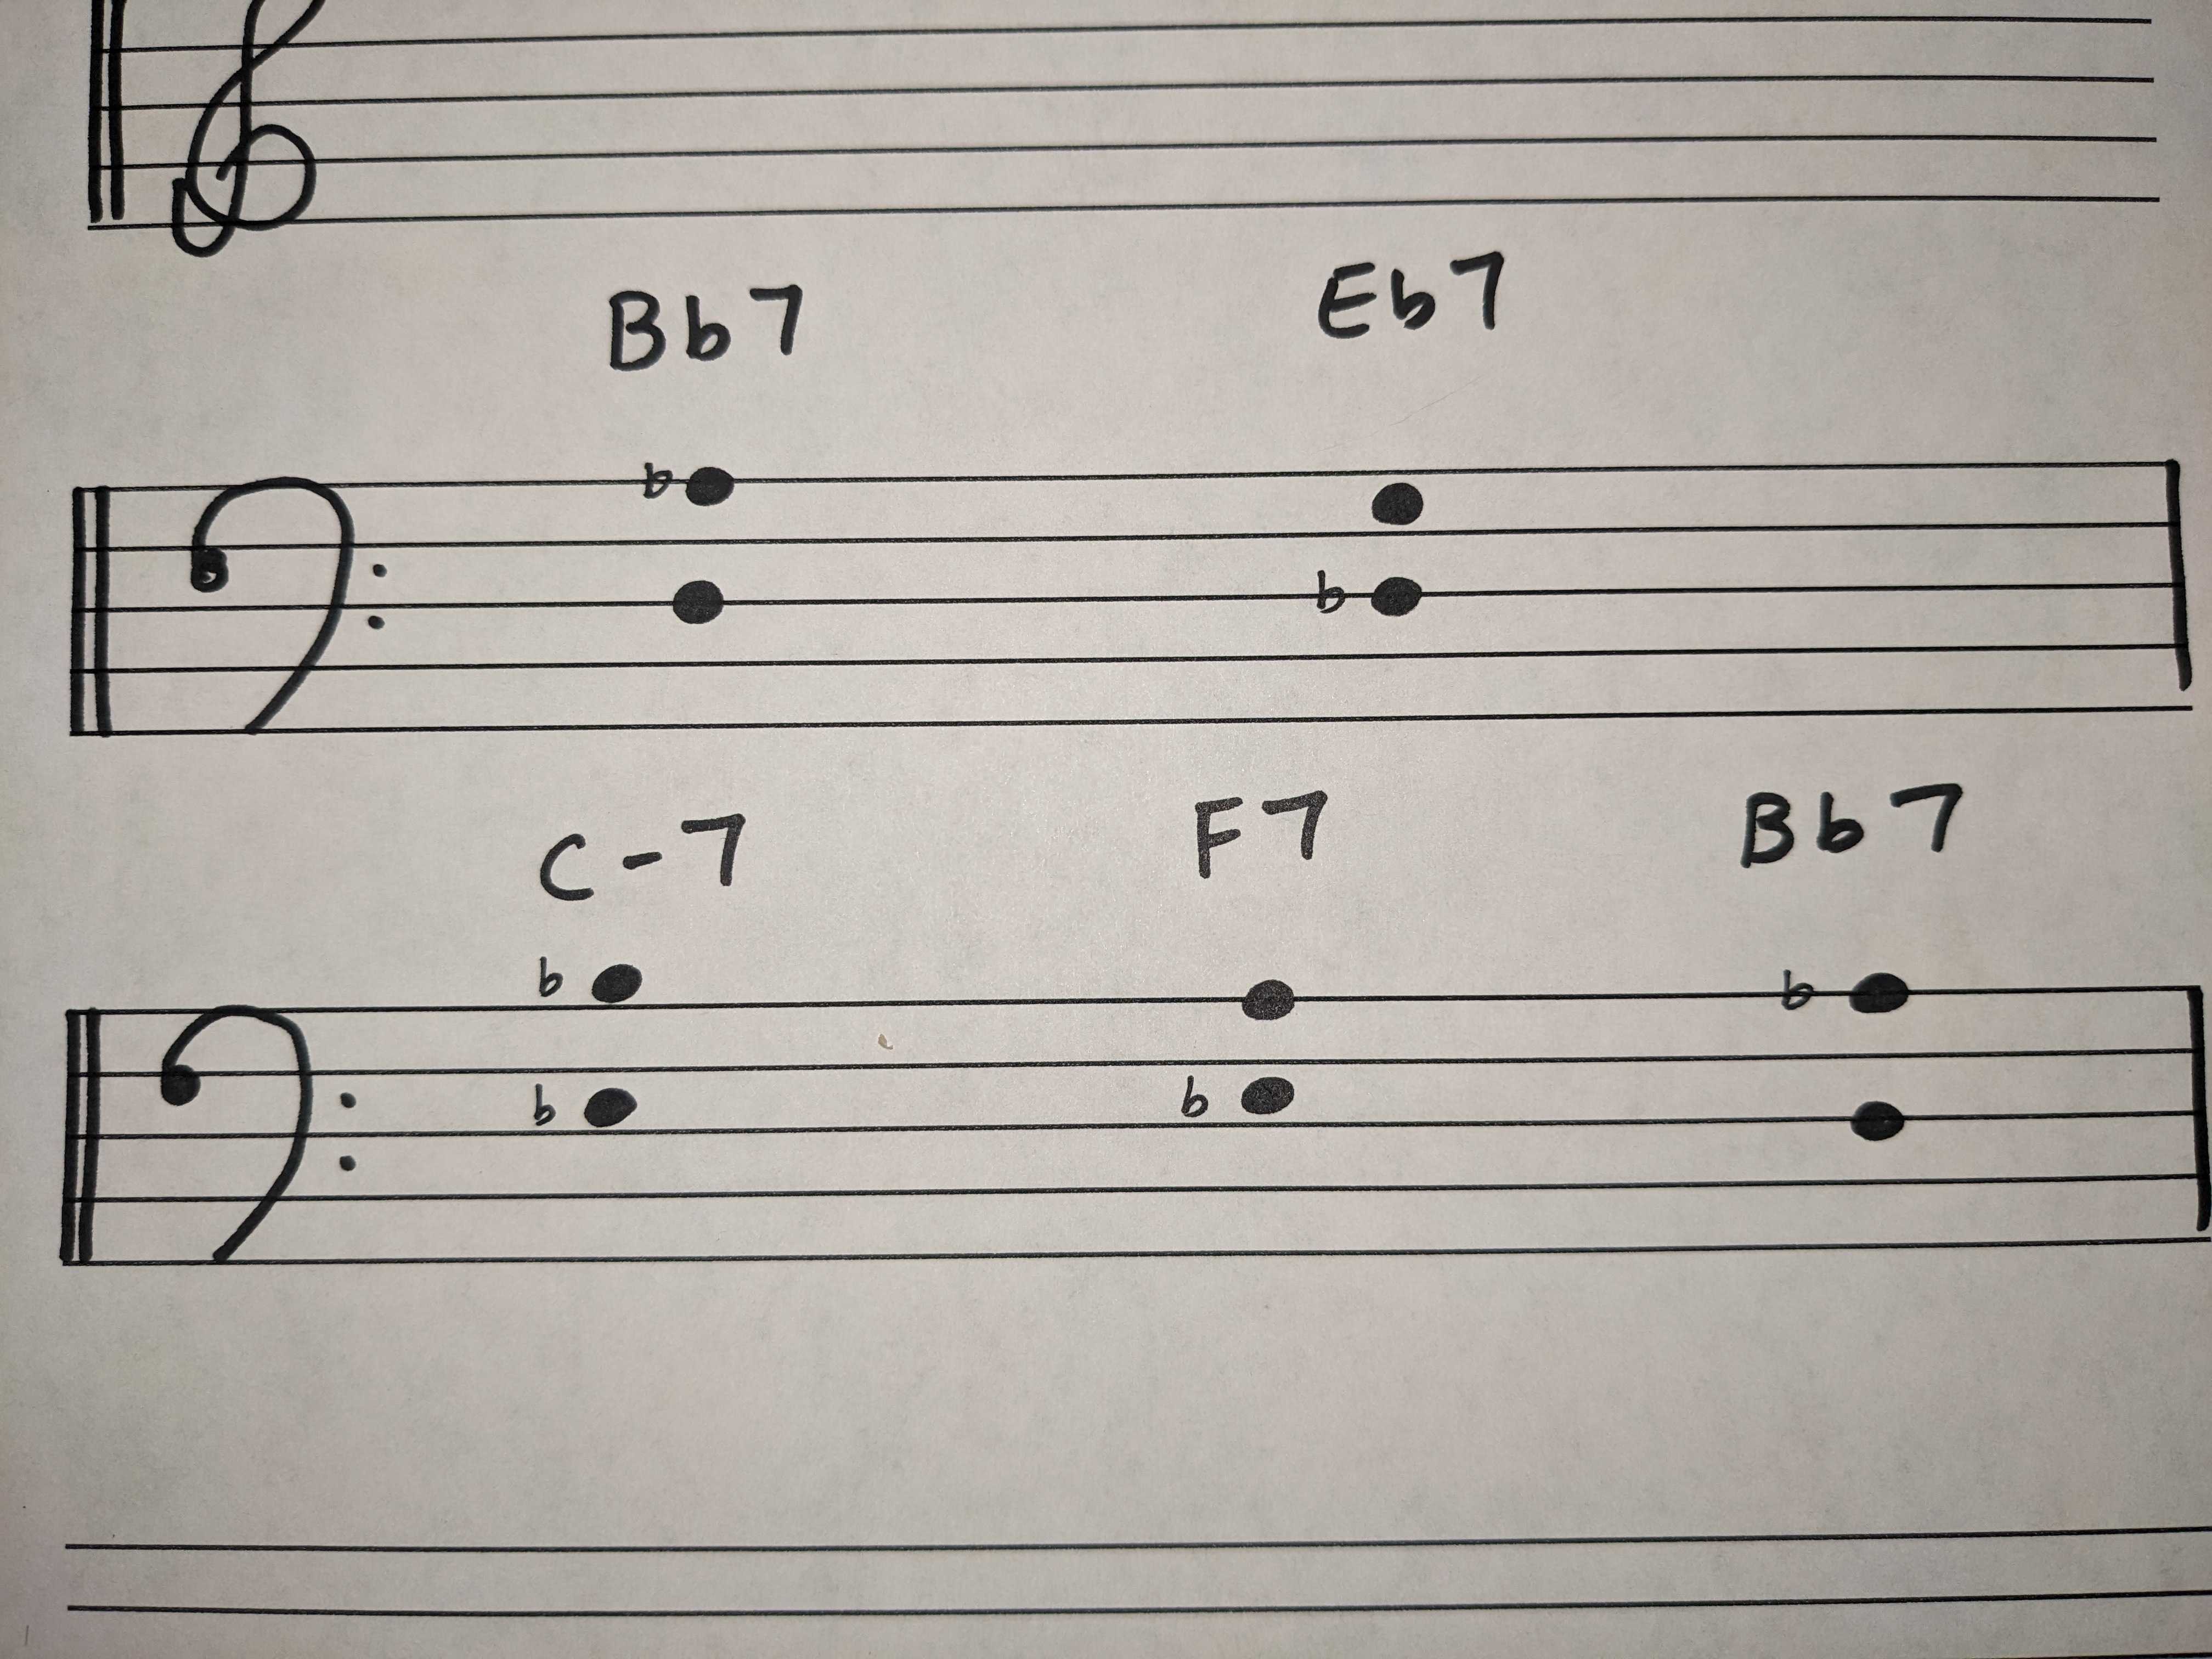 Bb7 Eb7
C-7 F7 Bb7